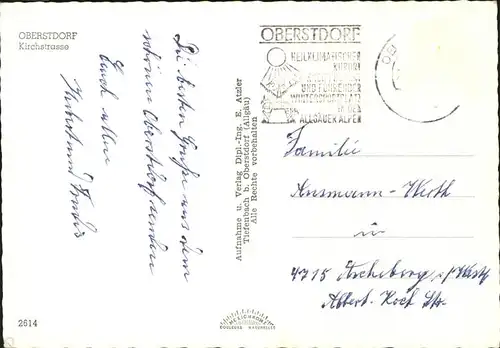 OBERSTDORF
Kirchstrasse
Die besten Grüße aus dem
schönen Oberstdorf senden
Euch allen
Herbert und
Aufnahme u. Verlag Dipl.-Ing. E. Atzler
Tiefenbach b. Oberstdorf (Allgäu)
Alle Rechte vorbehalten
OBERSTDORF
HEILKLIMATISCHER
KURORT
UND FÜHRENDER
WINTERSPORTPLATZ
IN DEN
ALLGÄUER ALPEN
Familie
Ansmann-Werth
in
4715 Ascheberg i/Westf
Albert-Koch Str.
MEXICHROME
2614